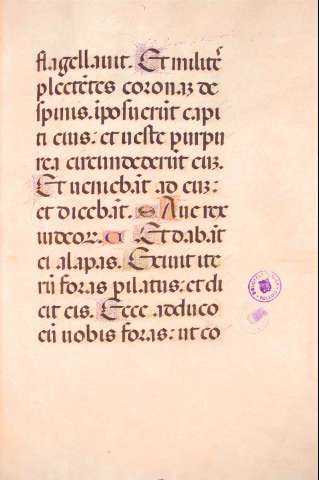 flagellauit. Et militeᷤ
plectētes coronaʒ de
spinis. īposuerūt capi
ti eius: et ueste purpu
rea circundederūt euʒ.
Et ueniebāt ad euʒ:
et dicebāt. Aue rex
iudeoꝝ. Et dabāt
ei alapas. Exiuit ite
rū foras pilatus: et di
cit eis. Ecce adduco
eū uobis foras: ut co